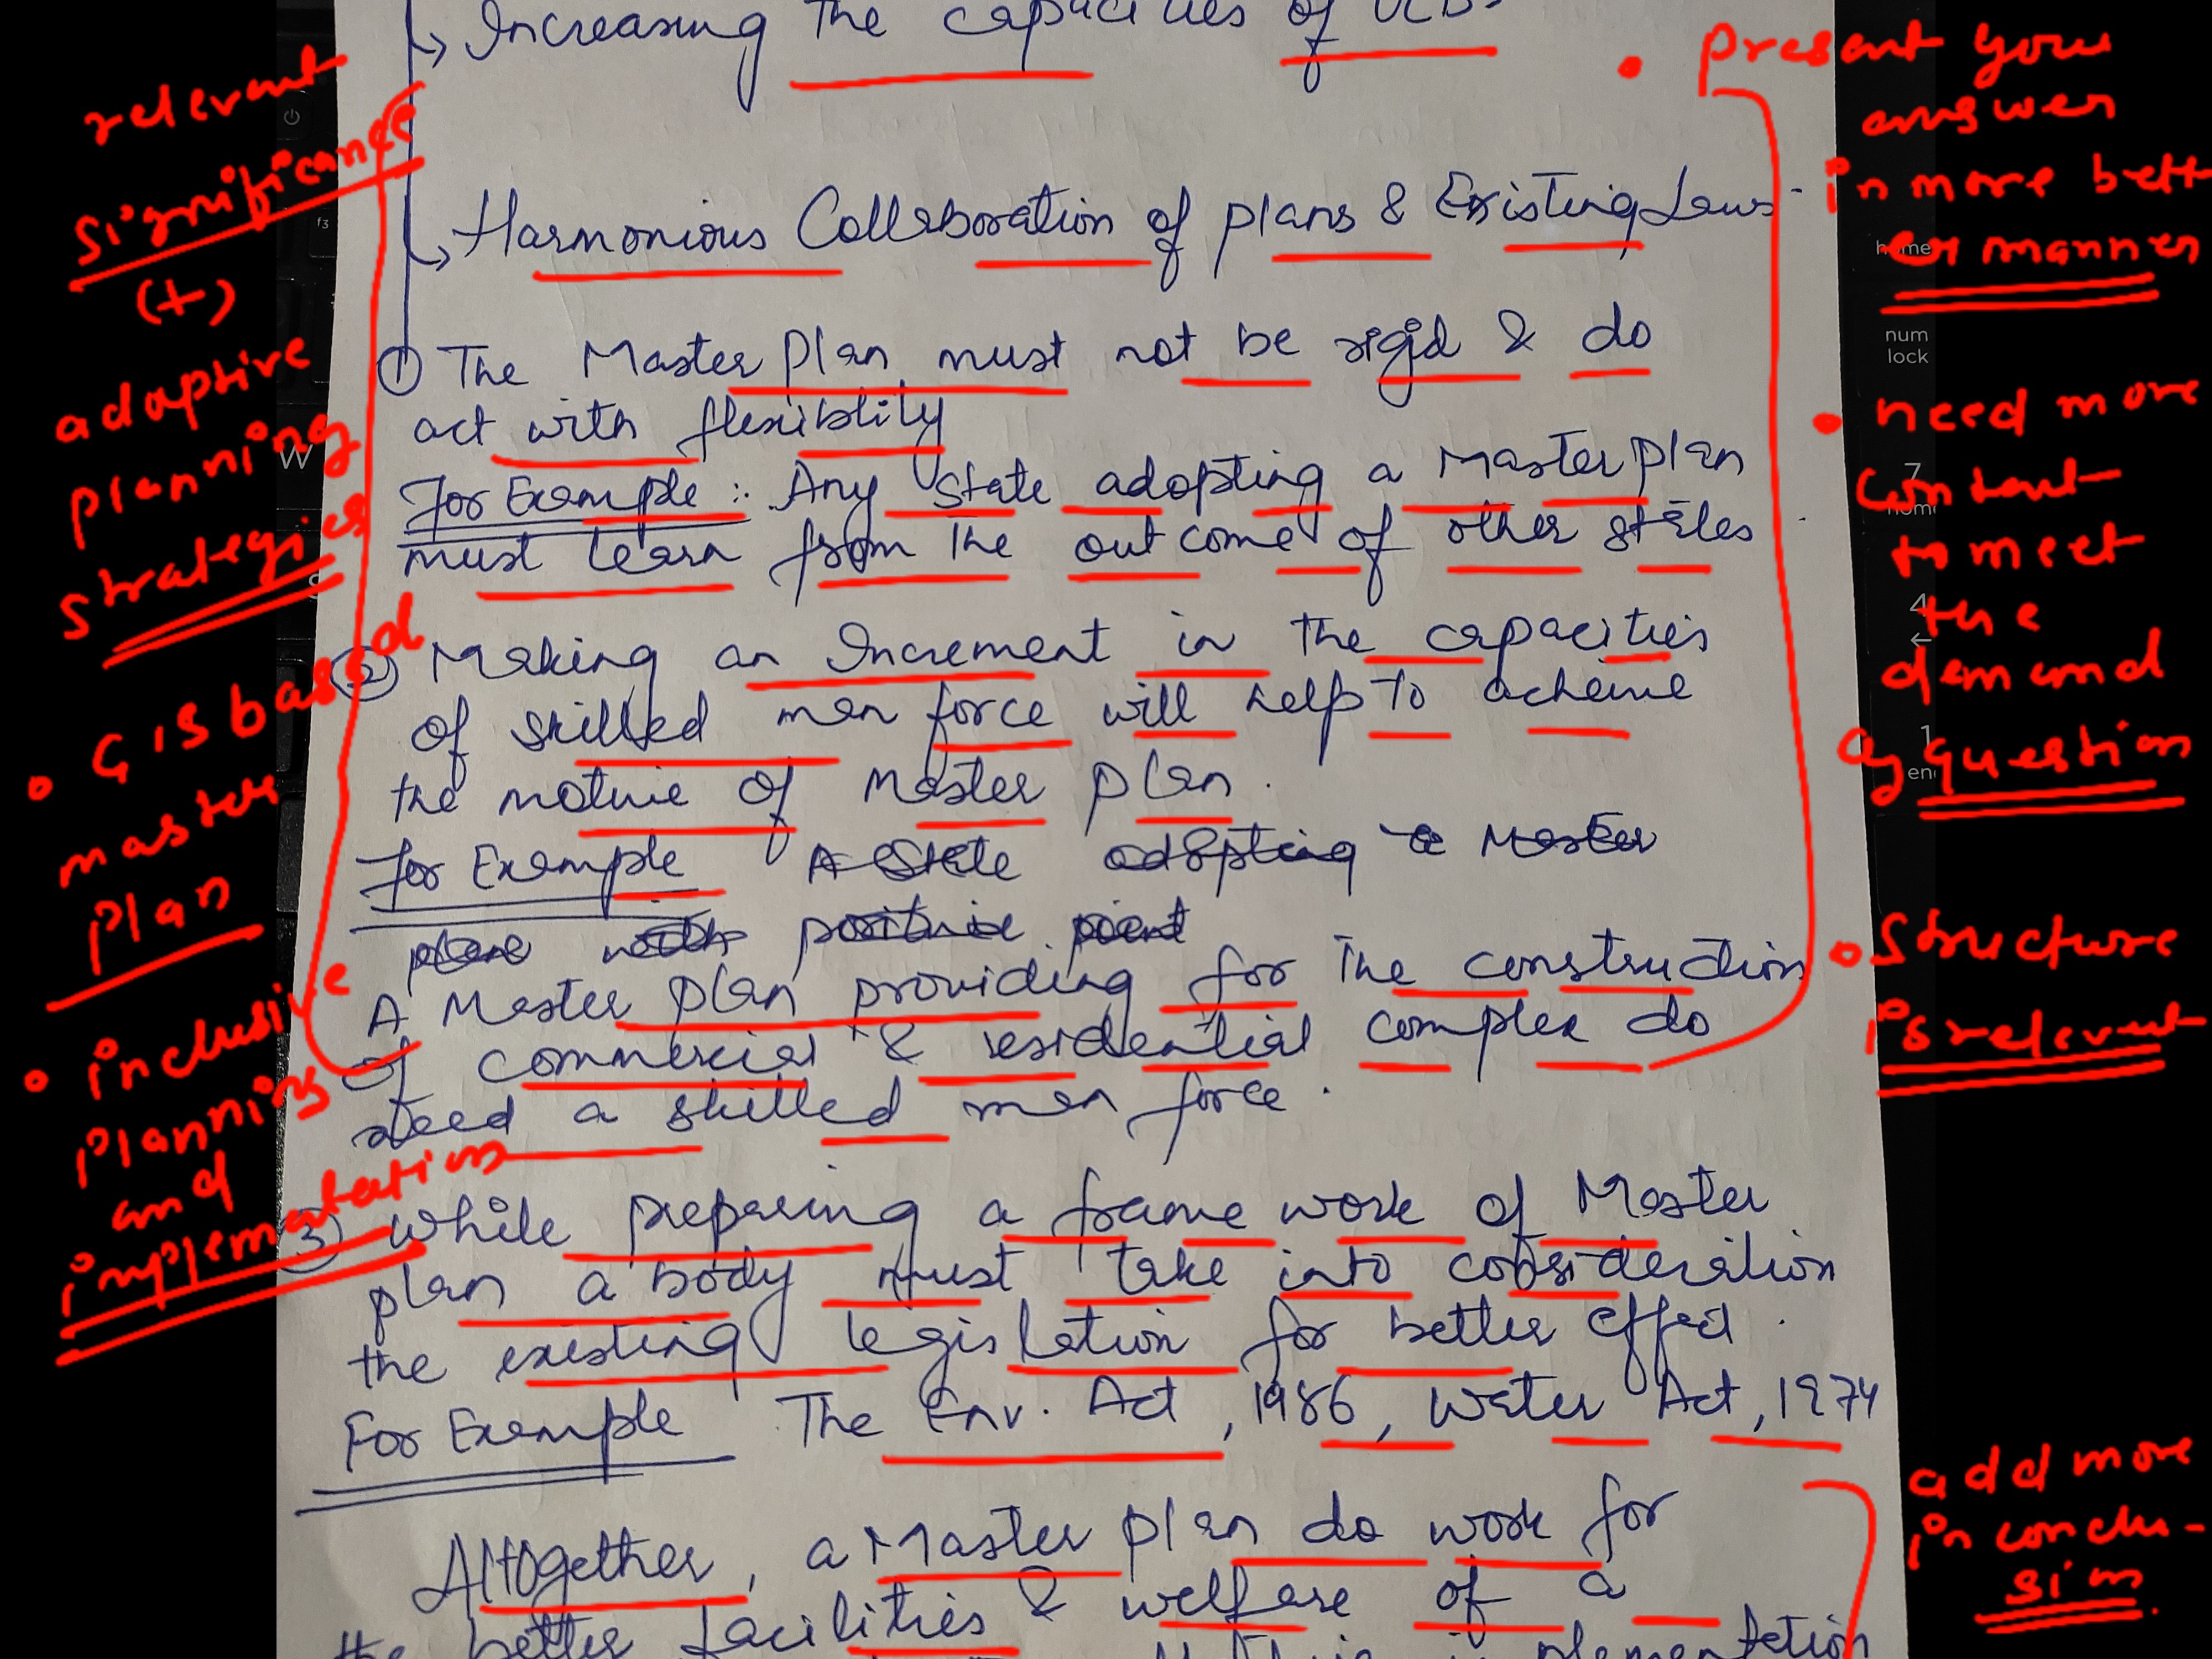 ↳ Increasing the capacities of ULBs
↳ Harmonious Collaboration of plans & Existing Laws
① The Master Plan must not be rigid & do
act with flexiblity
For Example :. Any State adopting a Master plan
must learn from the outcome of other states
② Making an Increment in the capacities
of skilled men force will help to acheive
the motive of Master plan.
For Example A State adopting a Master
plane with positive point
A Master plan providing for the construction
of commercial & residential complex do
need a skilled men force.
③ While preparing a frame work of Master
plan a body must take into consideration
the existing legislation for better effect.
For Example The Env. Act, 1986, Water Act, 1974
Altogether, a Master plan do work for
the better facilities & welfare of a
implementation
relevant
significance
(+)
adaptive
planning
strategies
• GIS based
master
plan
• inclusive
planning
and
implementation
• present your
answer
in more bett
er manner
• need more
content
to meet
the
demand
of question
• Structure
is relevant
add more
in conclu-
sion.
home
num
lock
7
home
4
←
1
end
f3
W